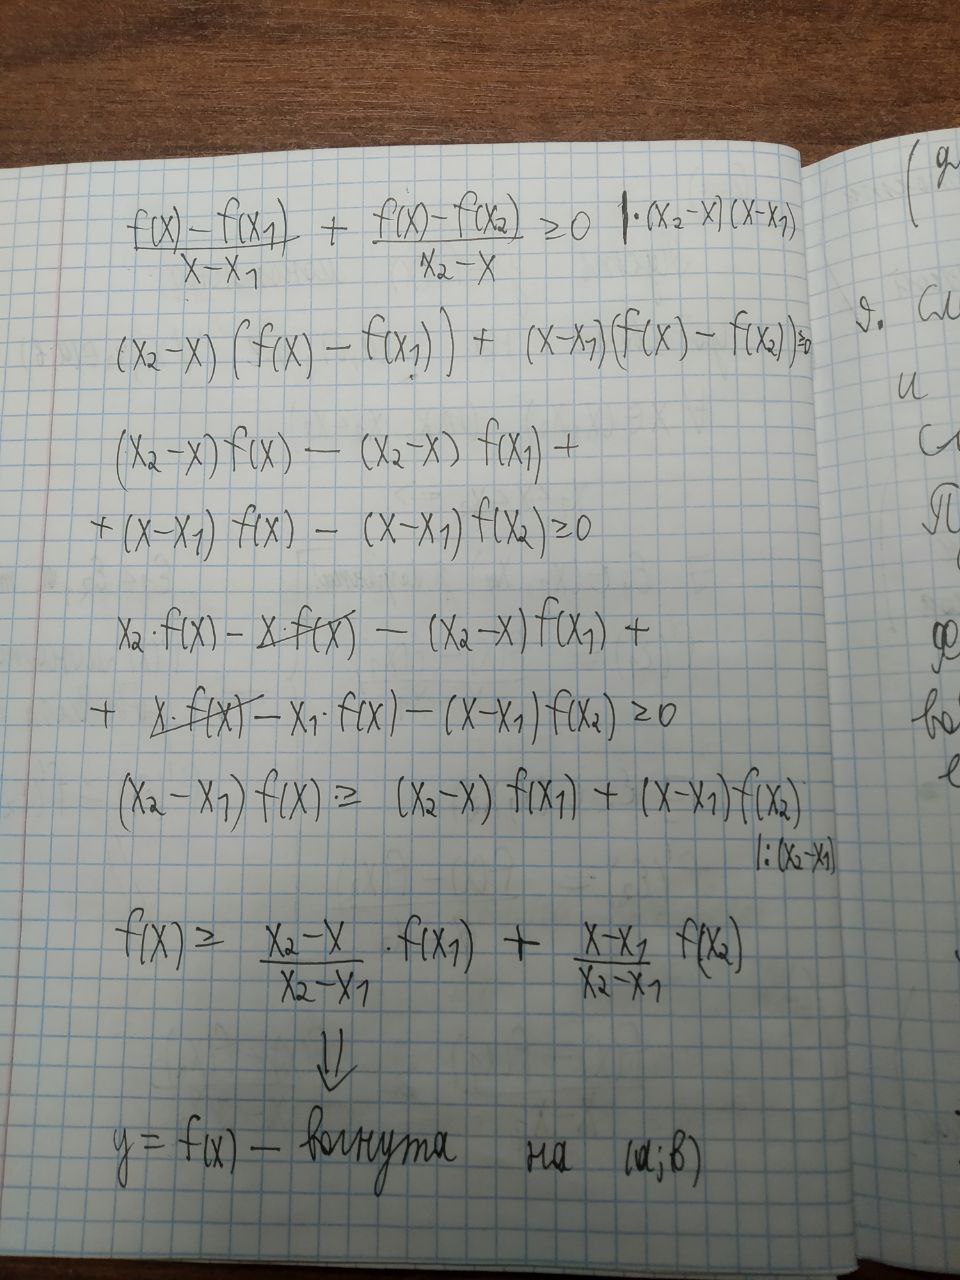 (f(x) - f(x₁))/(x - x₁) + (f(x) - f(x₂))/(x₂ - x) ≥ 0 |·(x₂-x)(x-x₁)
(x₂-x)(f(x) - f(x₁)) + (x-x₁)(f(x) - f(x₂)) ≥ 0
(x₂-x) f(x) - (x₂-x) f(x₁) +
+ (x-x₁) f(x) - (x-x₁) f(x₂) ≥ 0
x₂·f(x) - x·f(x) - (x₂-x) f(x₁) +
+ x·f(x) - x₁·f(x) - (x-x₁) f(x₂) ≥ 0
(x₂-x₁) f(x) ≥ (x₂-x) f(x₁) + (x-x₁) f(x₂)
|:(x₂-x₁)
f(x) ≥ (x₂-x)/(x₂-x₁) · f(x₁) + (x-x₁)/(x₂-x₁) f(x₂)
⇓
y = f(x) - вогнута на (a;b)
и